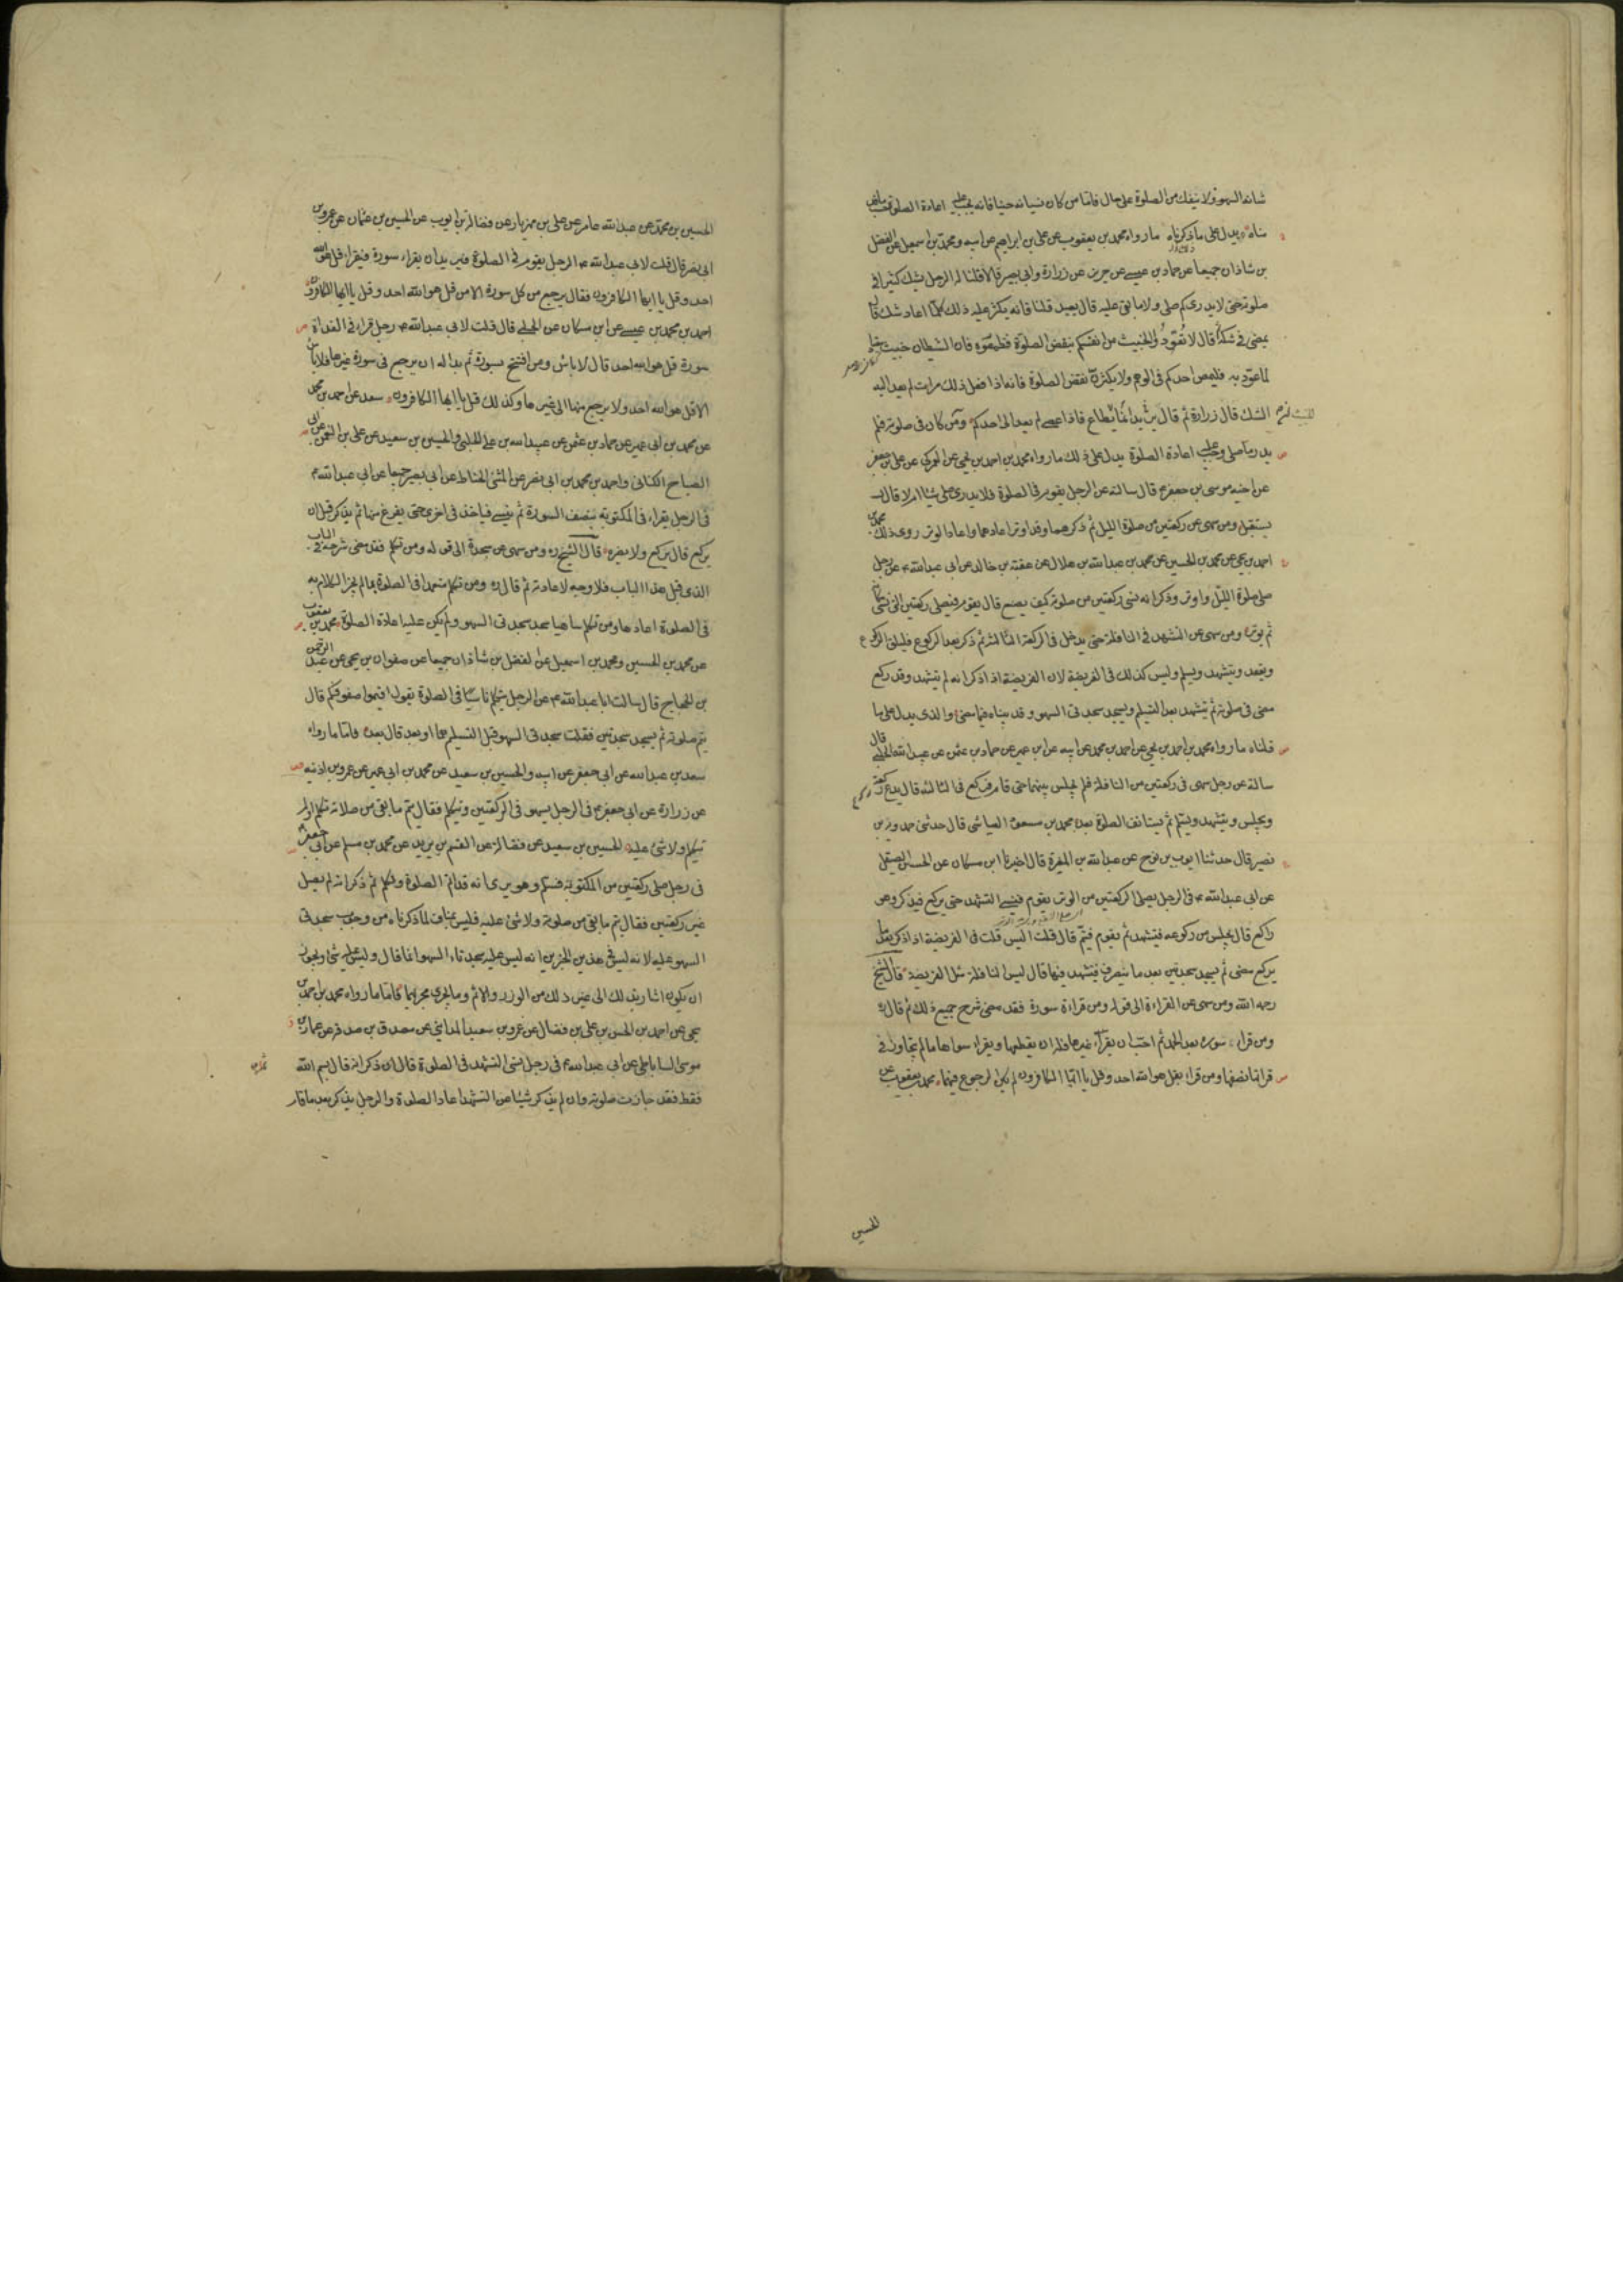 شانه السهو ولا ينفك من الصلوة على حال فاما من كان نسيانه حينا فانه يجب عليه اعادة الصلوة حسب ما قد
بيناه يدل على ما ذكرناه ما رواه محمد بن يعقوب عن على بن ابراهيم عن ابيه ومحمد بن اسمعيل عن الفضل
بن شاذان جميعا عن حماد بن عيسى عن حريز عن زرارة وابى بصير قالا قلنا له الرجل يشك كثيرا فى
صلوته حتى لا يدرى كم صلى ولا ما بقى عليه قال يعيد قلنا فانه يكثر عليه ذلك كلما اعاد شك قال
يمضى فى شكه قال لا تعودوا الخبيث من انفسكم بنقض الصلوة فتطمعوه فان الشيطان خبيث معتاد
لما عود به فليمض احدكم فى الوهم ولا يكثرن نقض الصلوة فانه اذا فعل ذلك مرات لم يعد اليه
الشك قال زرارة ثم قال يريد انما يطاع فاذا عصى لم يعد الى احدكم ومن كان فى صلوته فلم
يدر ما صلى وجب عليه اعادة الصلوة يدل على ذلك ما رواه محمد بن احمد بن يحيى عن العمركى عن على بن جعفر
عن اخيه موسى بن جعفر ع قال سالته عن الرجل يقوم فى الصلوة فلا يدرى صلى شيئا ام لا قال
يستقبل ومن سهى عن ركعتين من صلوة الليل ثم ذكرهما وقد اوتر اعادهما واعاد الوتر روى ذلك محمد بن
احمد بن يحيى عن محمد بن الحسين عن محمد بن عبدالله بن هلال عن عقبة بن خالد عن ابى عبدالله ع عن رجل
صلى صلوة الليل واوتر وذكر انه نسى ركعتين من صلوته كيف يصنع قال يقوم فيصلى ركعتين التى نسى مكانه
ثم يوتر ومن سهى عن التشهد فى النافلة حتى يدخل فى الركعة الثالثة ثم ذكر بعد الركوع فليلق الركوع
ويقعد ويتشهد ويسلم وليس كذلك فى الفريضة لان الفريضة اذا ذكر انه لم يتشهد وقد ركع
مضى فى صلوته ثم يتشهد بعد التسليم ويسجد سجدتى السهو وقد بيناه فيما مضى والذى يدل على ما
قلناه ما رواه محمد بن احمد بن يحيى عن احمد بن محمد عن ابيه عن ابن ابى عمير عن حماد بن عثمن عن عبيدالله الحلبى قال
سالته عن رجل سهى فى ركعتين من النافلة فلم يجلس بينهما حتى قام فركع فى الثالثة قال يدع ركعة
ويجلس ويتشهد ويسلم ثم يستانف الصلوة بعد محمد بن مسعود العياشى قال حدثنى حمدويه بن
نصير قال حدثنا ايوب بن نوح عن عبدالله بن المغيرة قال اخبرنا ابن مسكان عن الحسن الصيقل
عن ابى عبدالله ع فى الرجل يصلى الركعتين من الوتر يقوم فينسى التشهد حتى يركع فيذكر وهو
راكع قال يجلس من ركوعه فيتشهد ثم يقوم فيتم قال قلت اليس قلت فى الفريضة اذا ذكر بعد ما
يركع مضى ثم يسجد سجدتين بعد ما ينصرف فيتشهد فيهما قال ليس النافلة مثل الفريضة قال الشيخ
رحمه الله ومن سهى عن القراءة الى قوله ومن قراءة سورة فقد مضى شرح جميع ذلك ثم قال ره
ومن قراء سورة بعد الحمد ثم احب ان يقرأ غيرها فله ان يقطعها ويقراء سواها ما لم يتجاوز فى
قرائتها نصفها ومن قراء بقل هو الله احد وقل يا ايها الكافرون لم يكن له رجوع فيهما محمد بن يعقوب عن
الحسين
الحسين بن محمد عن عبدالله عامر عن على بن مهزيار عن فضالة بن ايوب عن الحسين بن عثمان عن عمرو بن
ابى نصر قال قلت لابى عبدالله ع الرجل يقوم فى الصلوة فيريد ان يقراء سورة فيقراء قل هو الله
احد وقل يا ايها الكافرون فقال يرجع من كل سورة الا من قل هو الله احد وقل يا ايها الكافرون
احمد بن محمد بن عيسى عن ابن مسكان عن الحلبى قال قلت لابى عبدالله ع رجل قراء فى الغداة
سورة قل هو الله احد قال لا باس ومن افتتح بسورة ثم بدا له ان يرجع فى سورة غيرها فلا باس
الا قل هو الله احد ولا يرجع منها الى غيرها وكذلك قل يا ايها الكافرون سعد عن احمد بن محمد
عن محمد بن ابى عمير عن حماد بن عثمن عن عبيدالله بن على الحلبى والحسين بن سعيد عن على بن النعمن عن ابى
الصباح الكنانى واحمد بن محمد بن ابى نصر عن المثنى الحناط عن ابى بصير جميعا عن ابى عبدالله ع
فى الرجل يقراء فى المكتوبة بنصف السورة ثم ينسى فياخذ فى اخرى حتى يفرغ منها ثم يذكر قبل ان
يركع قال يركع ولا يضره قال الشيخ ره ومن سهى عن سجدة الى قوله ومن تكلم فقد مضى شرحه فى الباب
الذى قبل هذا الباب فلا وجه لاعادته ثم قال ره ومن تكلم متعمدا فى الصلوة بما لم يجز الكلام به
فى الصلوة اعادها ومن تكلم ساهيا سجد سجدتى السهو ولم يكن عليه اعادة الصلوة محمد بن يعقوب
عن محمد بن الحسين ومحمد بن اسمعيل عن الفضل بن شاذان جميعا عن صفوان بن يحيى عن عبد الرحمن
بن الحجاج قال سالت ابا عبدالله ع عن الرجل يتكلم ناسيا فى الصلوة يقول اقيموا صفوفكم قال
يتم صلوته ثم يسجد سجدتين فقلت سجدتى السهو قبل التسليم هما او بعد قال بعد فاما ما رواه
سعد بن عبدالله عن ابى جعفر عن ابيه والحسين بن سعيد عن محمد بن ابى عمير عن عمر بن اذينه
عن زرارة عن ابى جعفر ع فى الرجل يسهو فى الركعتين ويتكلم فقال يتم ما بقى من صلاته تكلم او لم
يتكلم ولا شئ عليه الحسين بن سعيد عن فضالة عن القسم بن بريد عن محمد بن مسلم عن ابى جعفر ع
فى رجل صلى ركعتين من المكتوبة فسلم وهو يرى انه قد اتم الصلوة وتكلم ثم ذكر انه لم يصل
غير ركعتين فقال يتم ما بقى من صلوته ولا شئ عليه فليس بمناف لما ذكرناه من وجوب سجدتى
السهو عليه لانه ليس فى هذين الخبرين انه ليس عليه سجدتا السهو انما قال وليس عليه شئ ويجوز
ان يكون اشار بذلك الى غير ذلك من الوزر والاثم وما يجرى مجراهما فاما ما رواه محمد بن احمد بن
يحيى عن احمد بن الحسن بن على بن فضال عن عمرو بن سعيد المدائنى عن مصدق بن صدقه عن عمار بن
موسى الساباطى عن ابى عبدالله ع فى رجل نسى التشهد فى الصلوة قال ان ذكر انه قال بسم الله
فقط فقد جازت صلوته وان لم يذكر شيئا من التشهد اعاد الصلوة والرجل يذكر بعد ما قام